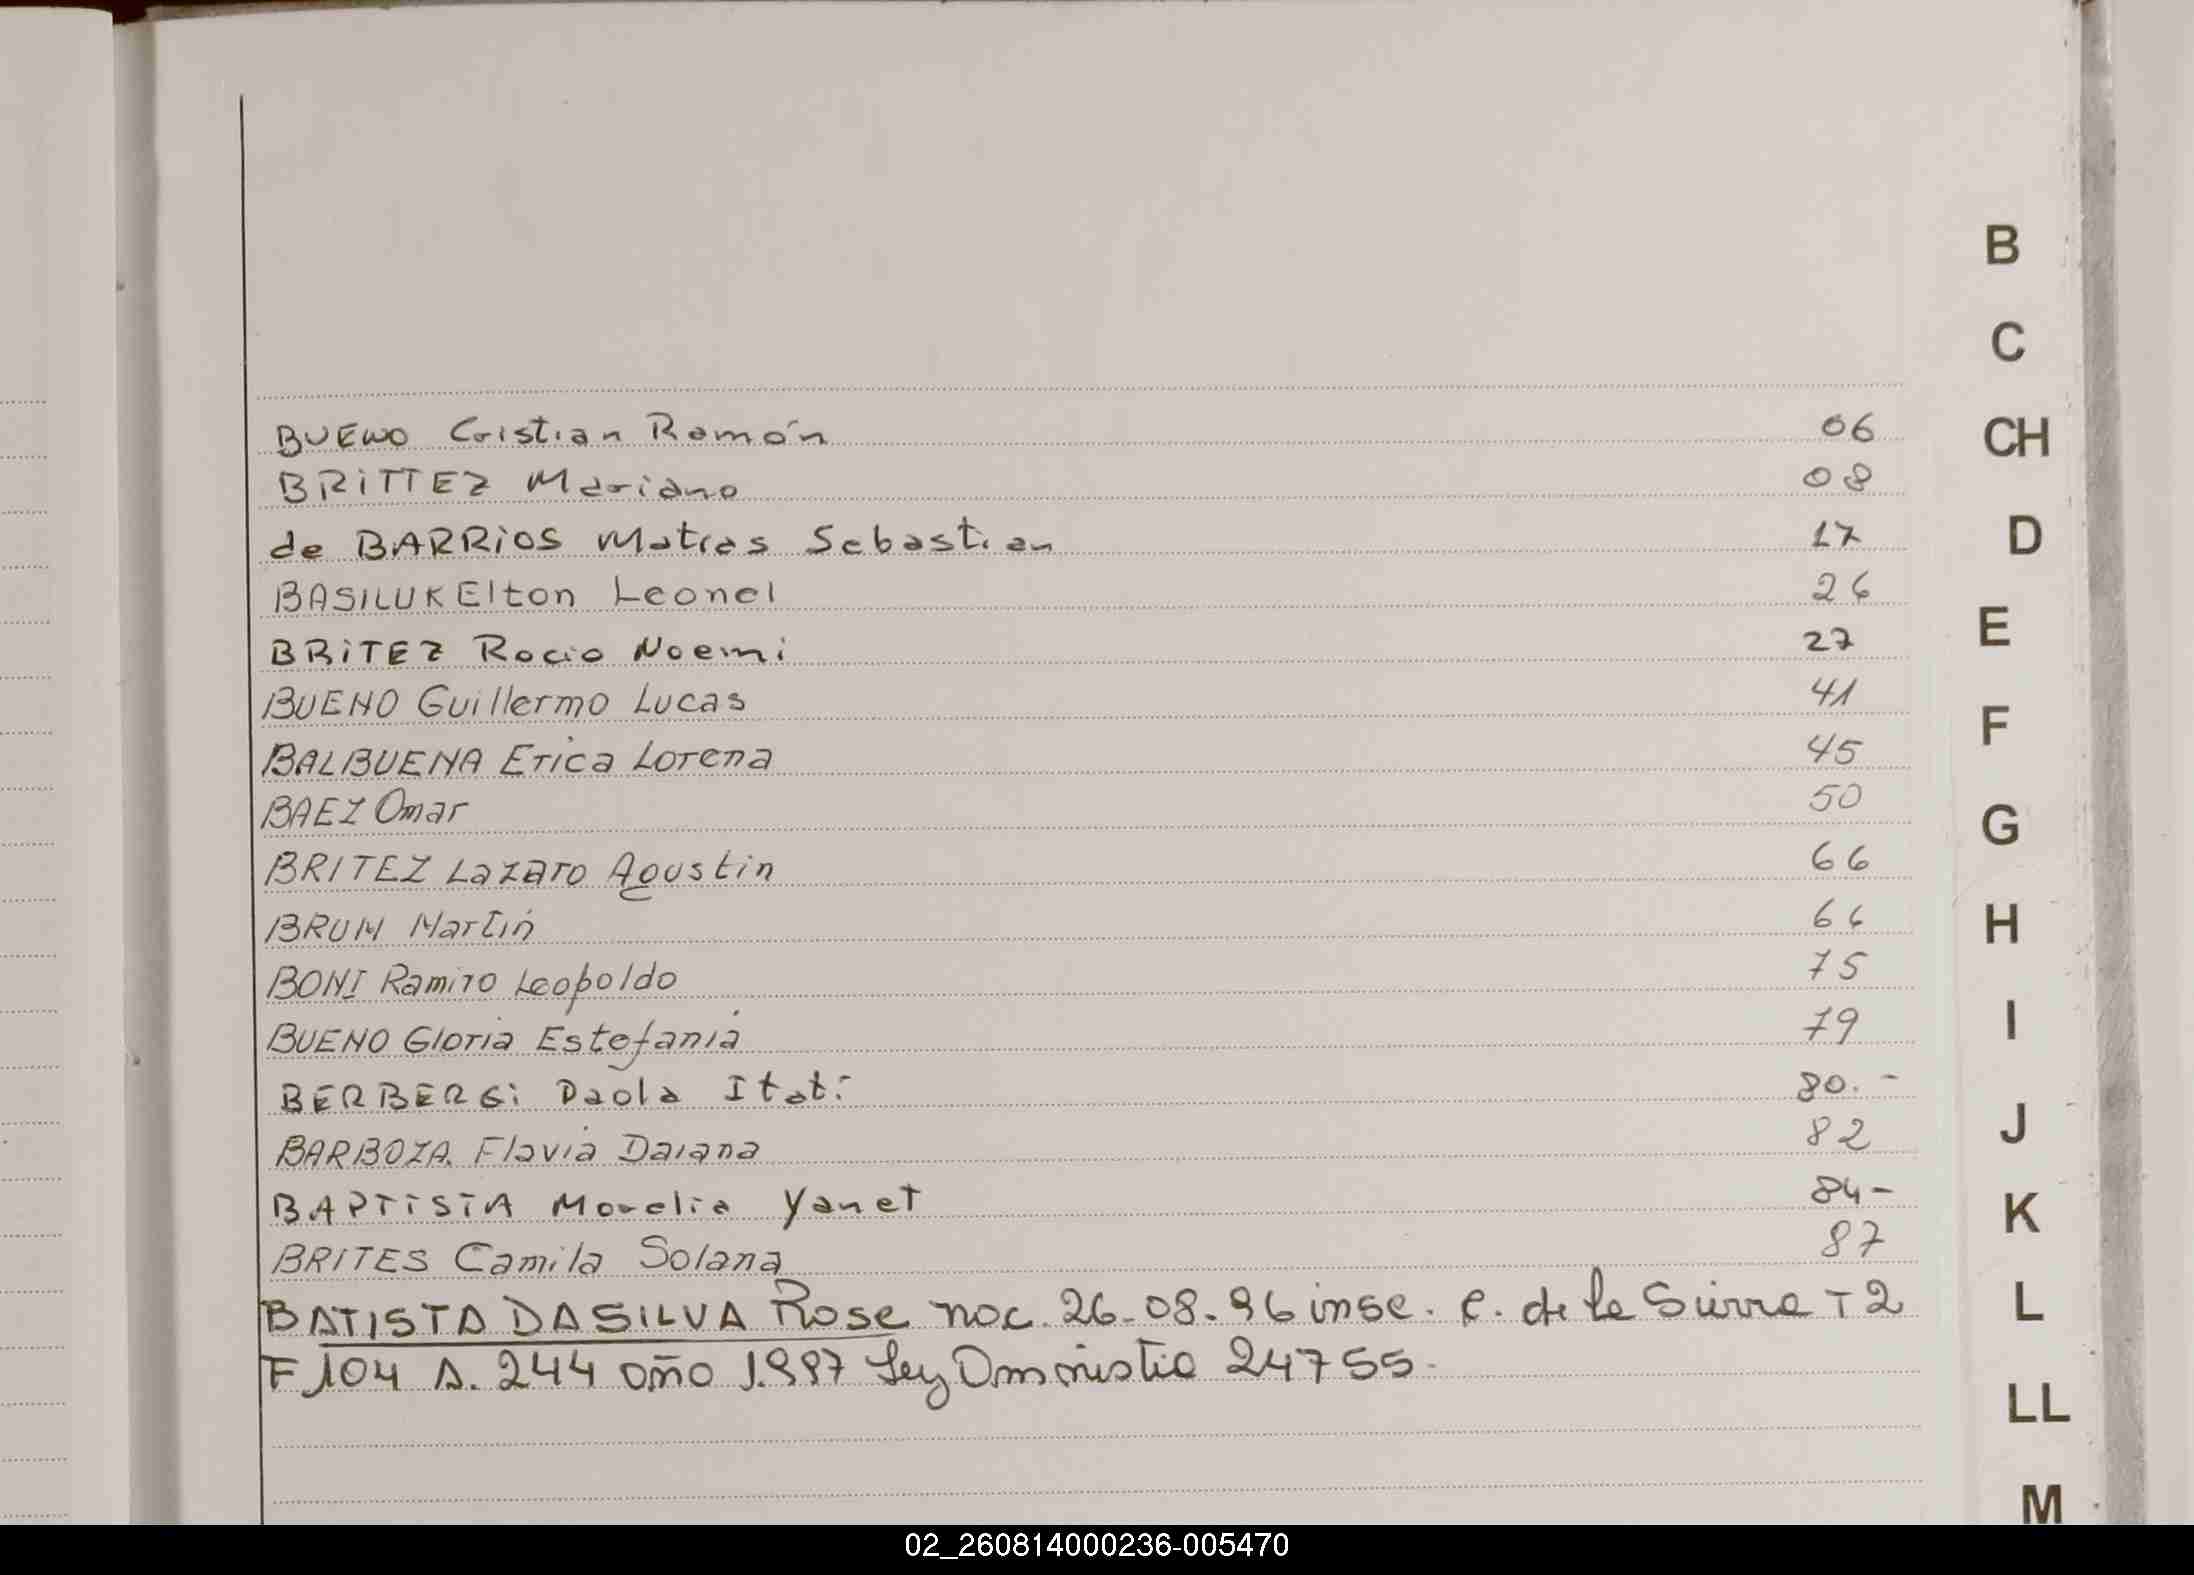 B
C
BUENO Cristian Ramón 06
CH
BRiTTEZ Mariano 08
de BARRiOS Matias Sebastian 17
D
BASILUK Elton Leonel 26
BRiTEZ Rocio Noemi 27
E
BUENO Guillermo Lucas 41
F
BALBUENA Erica Lorena 45
BAEZ Omar 50
G
BRITEZ Lazaro Agustin 66
BRUM Martin 66
H
BONI Ramiro Leopoldo 75
BUENO Gloria Estefania 79
I
BERBERGi Paola Itati 80.-
BARBOZA. Flavia Daiana 82
J
BAPTiSTA Morelia Yanet 84-
K
BRITES Camila Solana 87
BATISTA DA SILVA Rose nac. 26-08-96 insc. C. de la Sierra T 2
L
F 104 A. 244 año 1.997 Ley Amnistia 24755-
LL
M
02_260814000236-005470